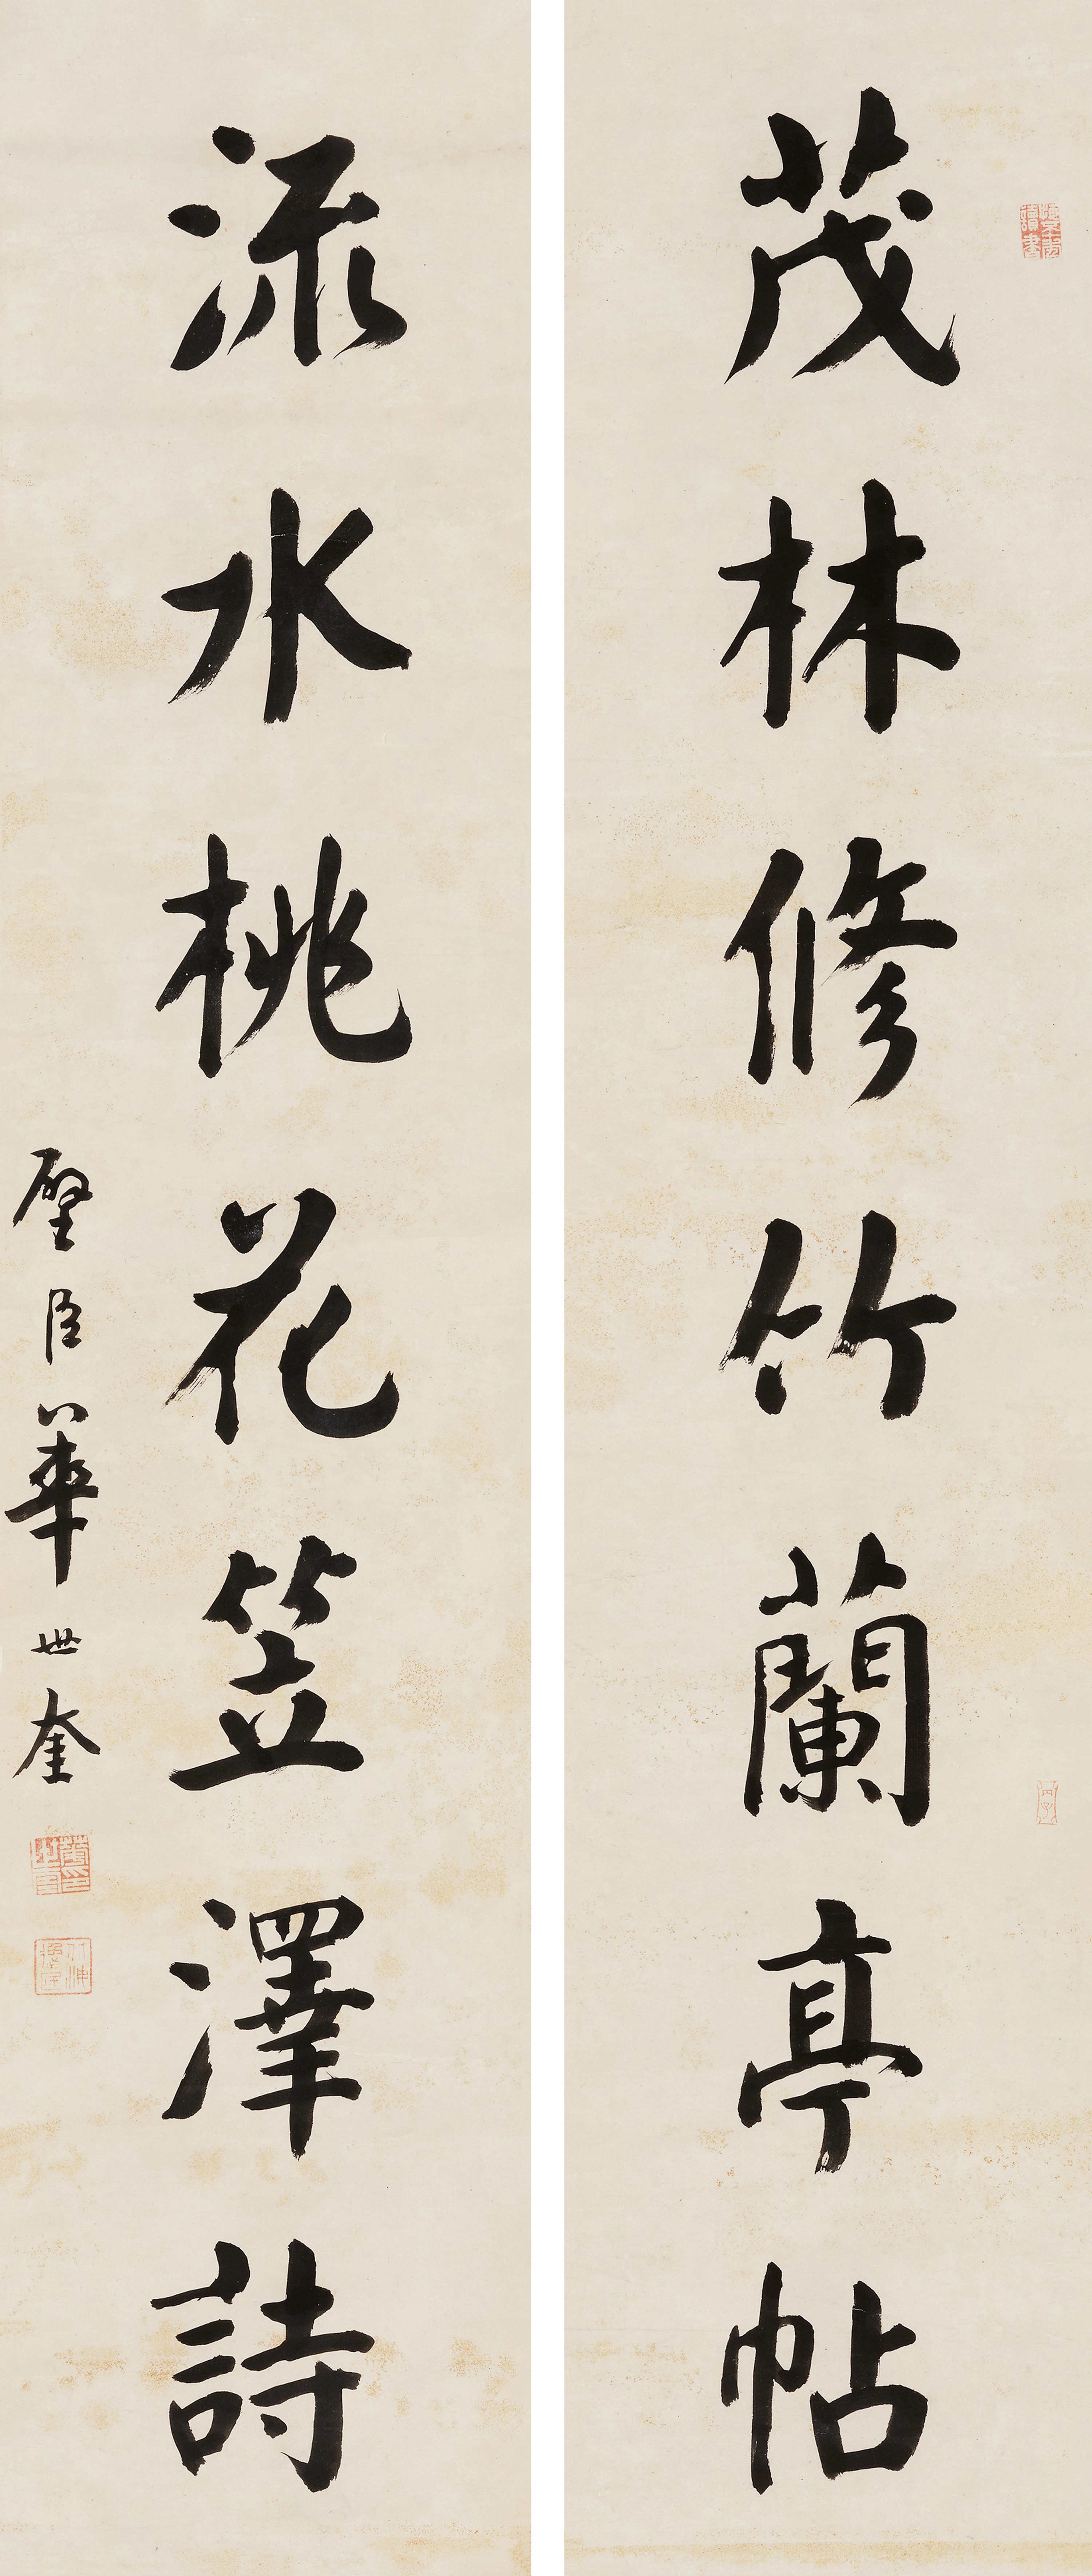 茂林修竹蘭亭帖
流水桃花笠澤詩
璧臣華世奎